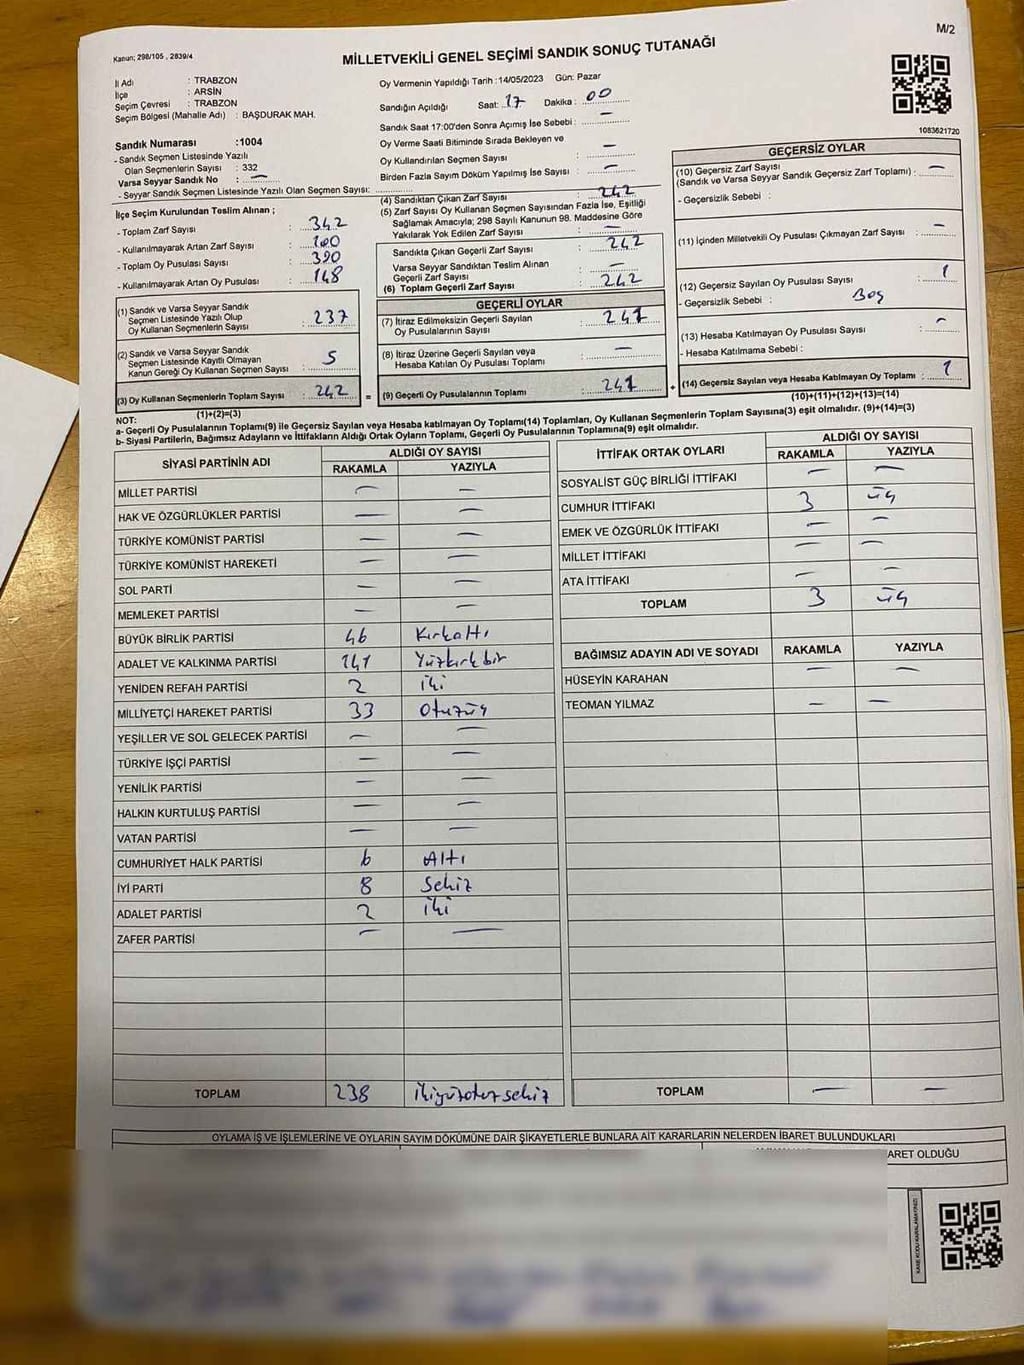 M/2
Kanun; 298/105 , 2839/4
MİLLETVEKİLİ GENEL SEÇİMİ SANDIK SONUÇ TUTANAĞI
İl Adı : TRABZON
İlçe : ARSİN
Seçim Çevresi : TRABZON
Seçim Bölgesi (Mahalle Adı) : BAŞDURAK MAH.
Sandık Numarası :1004
- Sandık Seçmen Listesinde Yazılı
Olan Seçmenlerin Sayısı : 332
Varsa Seyyar Sandık No : —
- Seyyar Sandık Seçmen Listesinde Yazılı Olan Seçmen Sayısı:
Oy Vermenin Yapıldığı Tarih :14/05/2023 Gün: Pazar
Sandığın Açıldığı Saat: 17 Dakika : 00
Sandık Saat 17:00'den Sonra Açımış İse Sebebi : —
Oy Verme Saati Bitiminde Sırada Bekleyen ve
Oy Kullandırılan Seçmen Sayısı : —
Birden Fazla Sayım Döküm Yapılmış İse Sayısı : —
1083621720
İlçe Seçim Kurulundan Teslim Alınan ;
- Toplam Zarf Sayısı : 342
- Kullanılmayarak Artan Zarf Sayısı : 100
- Toplam Oy Pusulası Sayısı : 390
- Kullanılmayarak Artan Oy Pusulası : 148
(1) Sandık ve Varsa Seyyar Sandık
Seçmen Listesinde Yazılı Olup
Oy Kullanan Seçmenlerin Sayısı : 237
(2) Sandık ve Varsa Seyyar Sandık
Seçmen Listesinde Kayıtlı Olmayan
Kanun Gereği Oy Kullanan Seçmen Sayısı : 5
(3) Oy Kullanan Seçmenlerin Toplam Sayısı : 242
(1)+(2)=(3)
(4) Sandıktan Çıkan Zarf Sayısı : 242
(5) Zarf Sayısı Oy Kullanan Seçmen Sayısından Fazla İse, Eşitliği
Sağlamak Amacıyla; 298 Sayılı Kanunun 98. Maddesine Göre
Yakılarak Yok Edilen Zarf Sayısı : —
Sandıkta Çıkan Geçerli Zarf Sayısı : 242
Varsa Seyyar Sandıktan Teslim Alınan
Geçerli Zarf Sayısı : —
(6) Toplam Geçerli Zarf Sayısı : 242
GEÇERLİ OYLAR
(7) İtiraz Edilmeksizin Geçerli Sayılan
Oy Pusulalarının Sayısı : 241
(8) İtiraz Üzerine Geçerli Sayılan veya
Hesaba Katılan Oy Pusulası Toplamı : —
= (9) Geçerli Oy Pusulalarının Toplamı : 241 +
GEÇERSİZ OYLAR
(10) Geçersiz Zarf Sayısı
(Sandık ve Varsa Seyyar Sandık Geçersiz Zarf Toplamı) : —
- Geçersizlik Sebebi :
(11) İçinden Milletvekili Oy Pusulası Çıkmayan Zarf Sayısı : —
(12) Geçersiz Sayılan Oy Pusulası Sayısı : 1
- Geçersizlik Sebebi : Boş
(13) Hesaba Katılmayan Oy Pusulası Sayısı : —
- Hesaba Katılmama Sebebi :
(14) Geçersiz Sayılan veya Hesaba Katılmayan Oy Toplamı : 1
(10)+(11)+(12)+(13)=(14)
NOT:
a- Geçerli Oy Pusulalarının Toplamı(9) ile Geçersiz Sayılan veya Hesaba katılmayan Oy Toplamı(14) Toplamları, Oy Kullanan Seçmenlerin Toplam Sayısına(3) eşit olmalıdır. (9)+(14)=(3)
b- Siyasi Partilerin, Bağımsız Adayların ve İttifakların Aldığı Ortak Oyların Toplamı, Geçerli Oy Pusulalarının Toplamına(9) eşit olmalıdır.
SİYASİ PARTİNİN ADI ALDIĞI OY SAYISI
RAKAMLA YAZIYLA
MİLLET PARTİSİ — —
HAK VE ÖZGÜRLÜKLER PARTİSİ — —
TÜRKİYE KOMÜNİST PARTİSİ — —
TÜRKİYE KOMÜNİST HAREKETİ — —
SOL PARTİ — —
MEMLEKET PARTİSİ — —
BÜYÜK BİRLİK PARTİSİ 46 Kırkaltı
ADALET VE KALKINMA PARTİSİ 141 Yüzkırkbir
YENİDEN REFAH PARTİSİ 2 iki
MİLLİYETÇİ HAREKET PARTİSİ 33 Otuzüç
YEŞİLLER VE SOL GELECEK PARTİSİ — —
TÜRKİYE İŞÇİ PARTİSİ — —
YENİLİK PARTİSİ — —
HALKIN KURTULUŞ PARTİSİ — —
VATAN PARTİSİ — —
CUMHURİYET HALK PARTİSİ 6 Altı
İYİ PARTİ 8 Sekiz
ADALET PARTİSİ 2 iki
ZAFER PARTİSİ — —
TOPLAM 238 ikiyüzotuzsekiz
İTTİFAK ORTAK OYLARI ALDIĞI OY SAYISI
RAKAMLA YAZIYLA
SOSYALİST GÜÇ BİRLİĞİ İTTİFAKI — —
CUMHUR İTTİFAKI 3 üç
EMEK VE ÖZGÜRLÜK İTTİFAKI — —
MİLLET İTTİFAKI — —
ATA İTTİFAKI — —
TOPLAM 3 üç
BAĞIMSIZ ADAYIN ADI VE SOYADI RAKAMLA YAZIYLA
HÜSEYİN KARAHAN — —
TEOMAN YILMAZ — —
TOPLAM — —
OYLAMA İŞ VE İŞLEMLERİNE VE OYLARIN SAYIM DÖKÜMÜNE DAİR ŞİKAYETLERLE BUNLARA AİT KARARLARIN NELERDEN İBARET BULUNDUKLARI
ARET OLDUĞU
KARE KODU KARALAMAYINIZ!